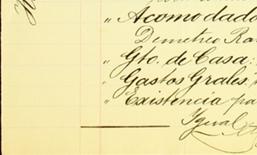 " Acomodado
Demetrio
" Gto. de Casa:
" Gastos Grales.
" Existencia pa
Ygual